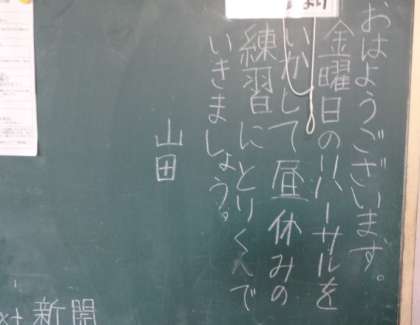 おはようございます。
金曜日のリハーサルを
いかして昼休みの
練習にとりくんで
いきましょう。
山田